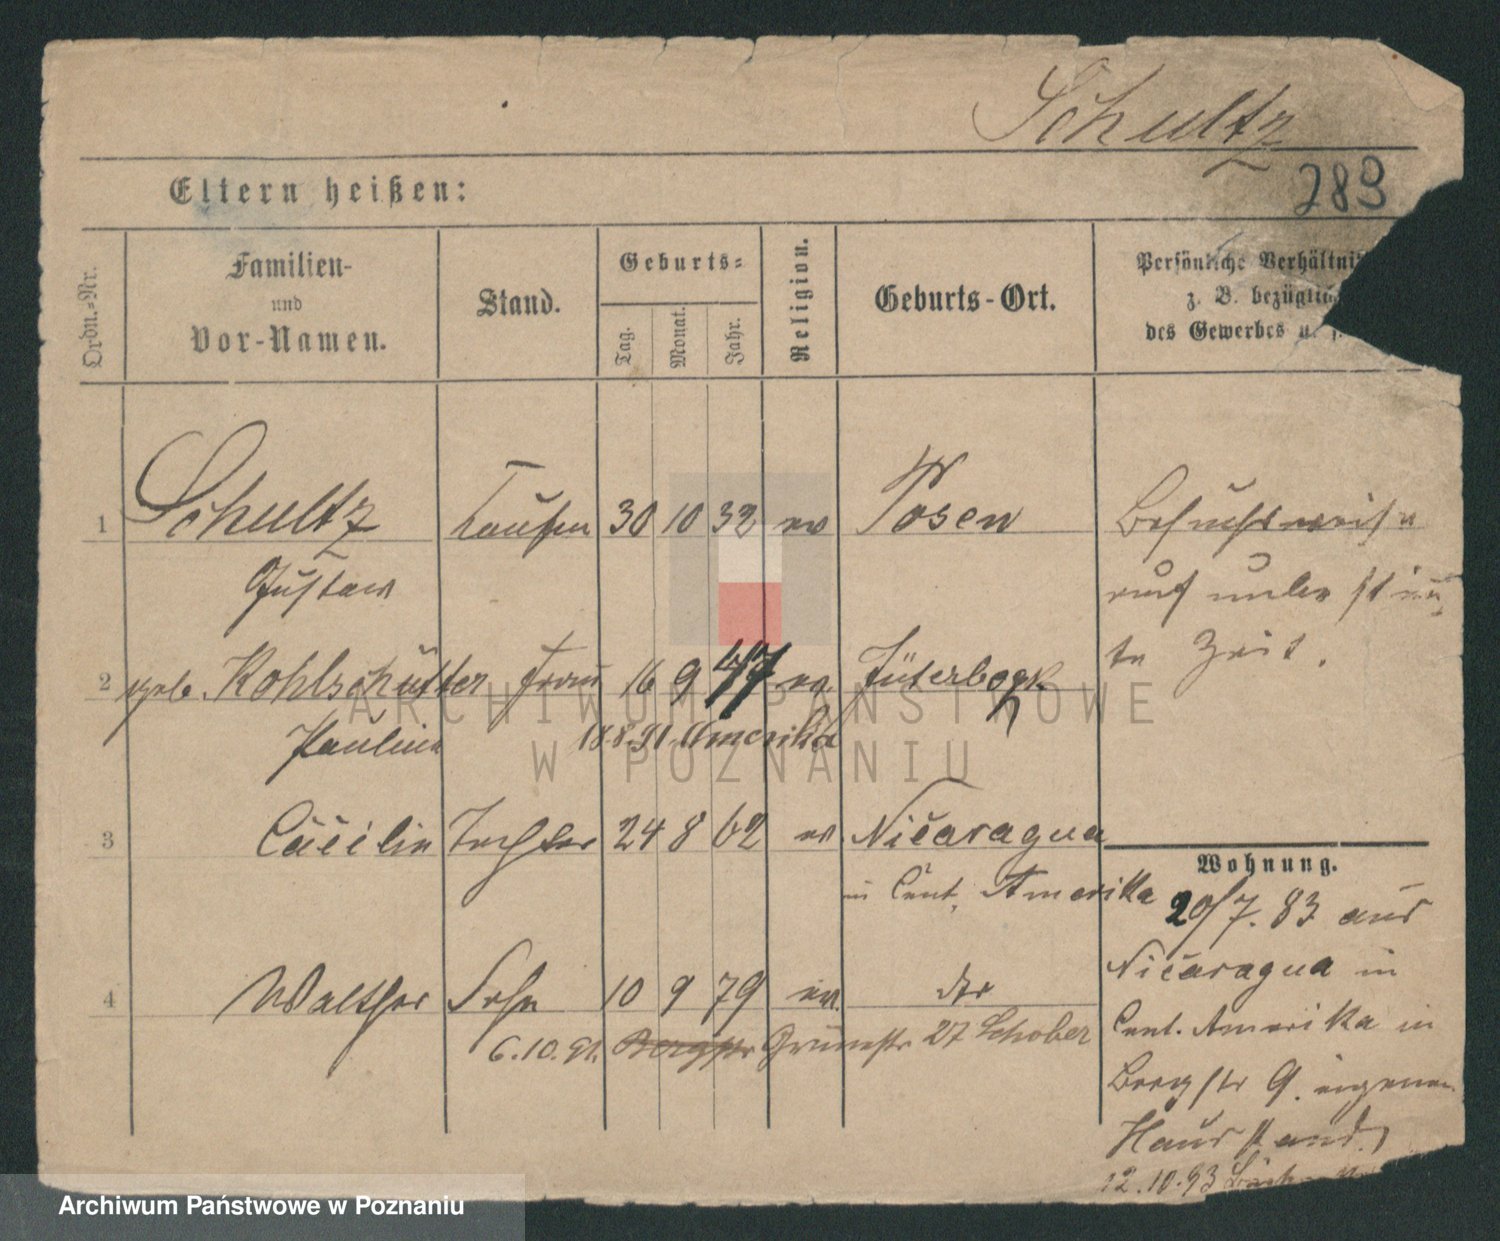 Schultz
283
Eltern heißen:
Ordn.-Nr.
Familien-
und
Vor-Namen.
Stand.
Geburts-
Tag.
Monat.
Jahr.
Religion.
Geburts-Ort.
Persönliche Verhältni
z. B. bezügli
des Gewerbes u. s.
1 Schultz Kaufm 30 10 32 ev Posen
Gustav
2 geb. Kohlschütter Frau 16 9 47 ev. Jüterbogk
Pauline 18.8.91. Amerika
3 Cäcilie Tochter 24 8 62 ev. Nicaragua
in Cent. Amerika
4 Walther Sohn 10 9 79 ev. dto
6.10.91. Bergstr Grünestr 27 Schober
Besuchsweise
auf unbestimm
te Zeit.
Wohnung.
20/7.83 aus
Nicaragua in
Cent. Amerika in
Bergstr 9. eigenen
Hausstand.
12.10.93
ARCHIWUM PAŃSTWOWE
W POZNANIU
Archiwum Państwowe w Poznaniu